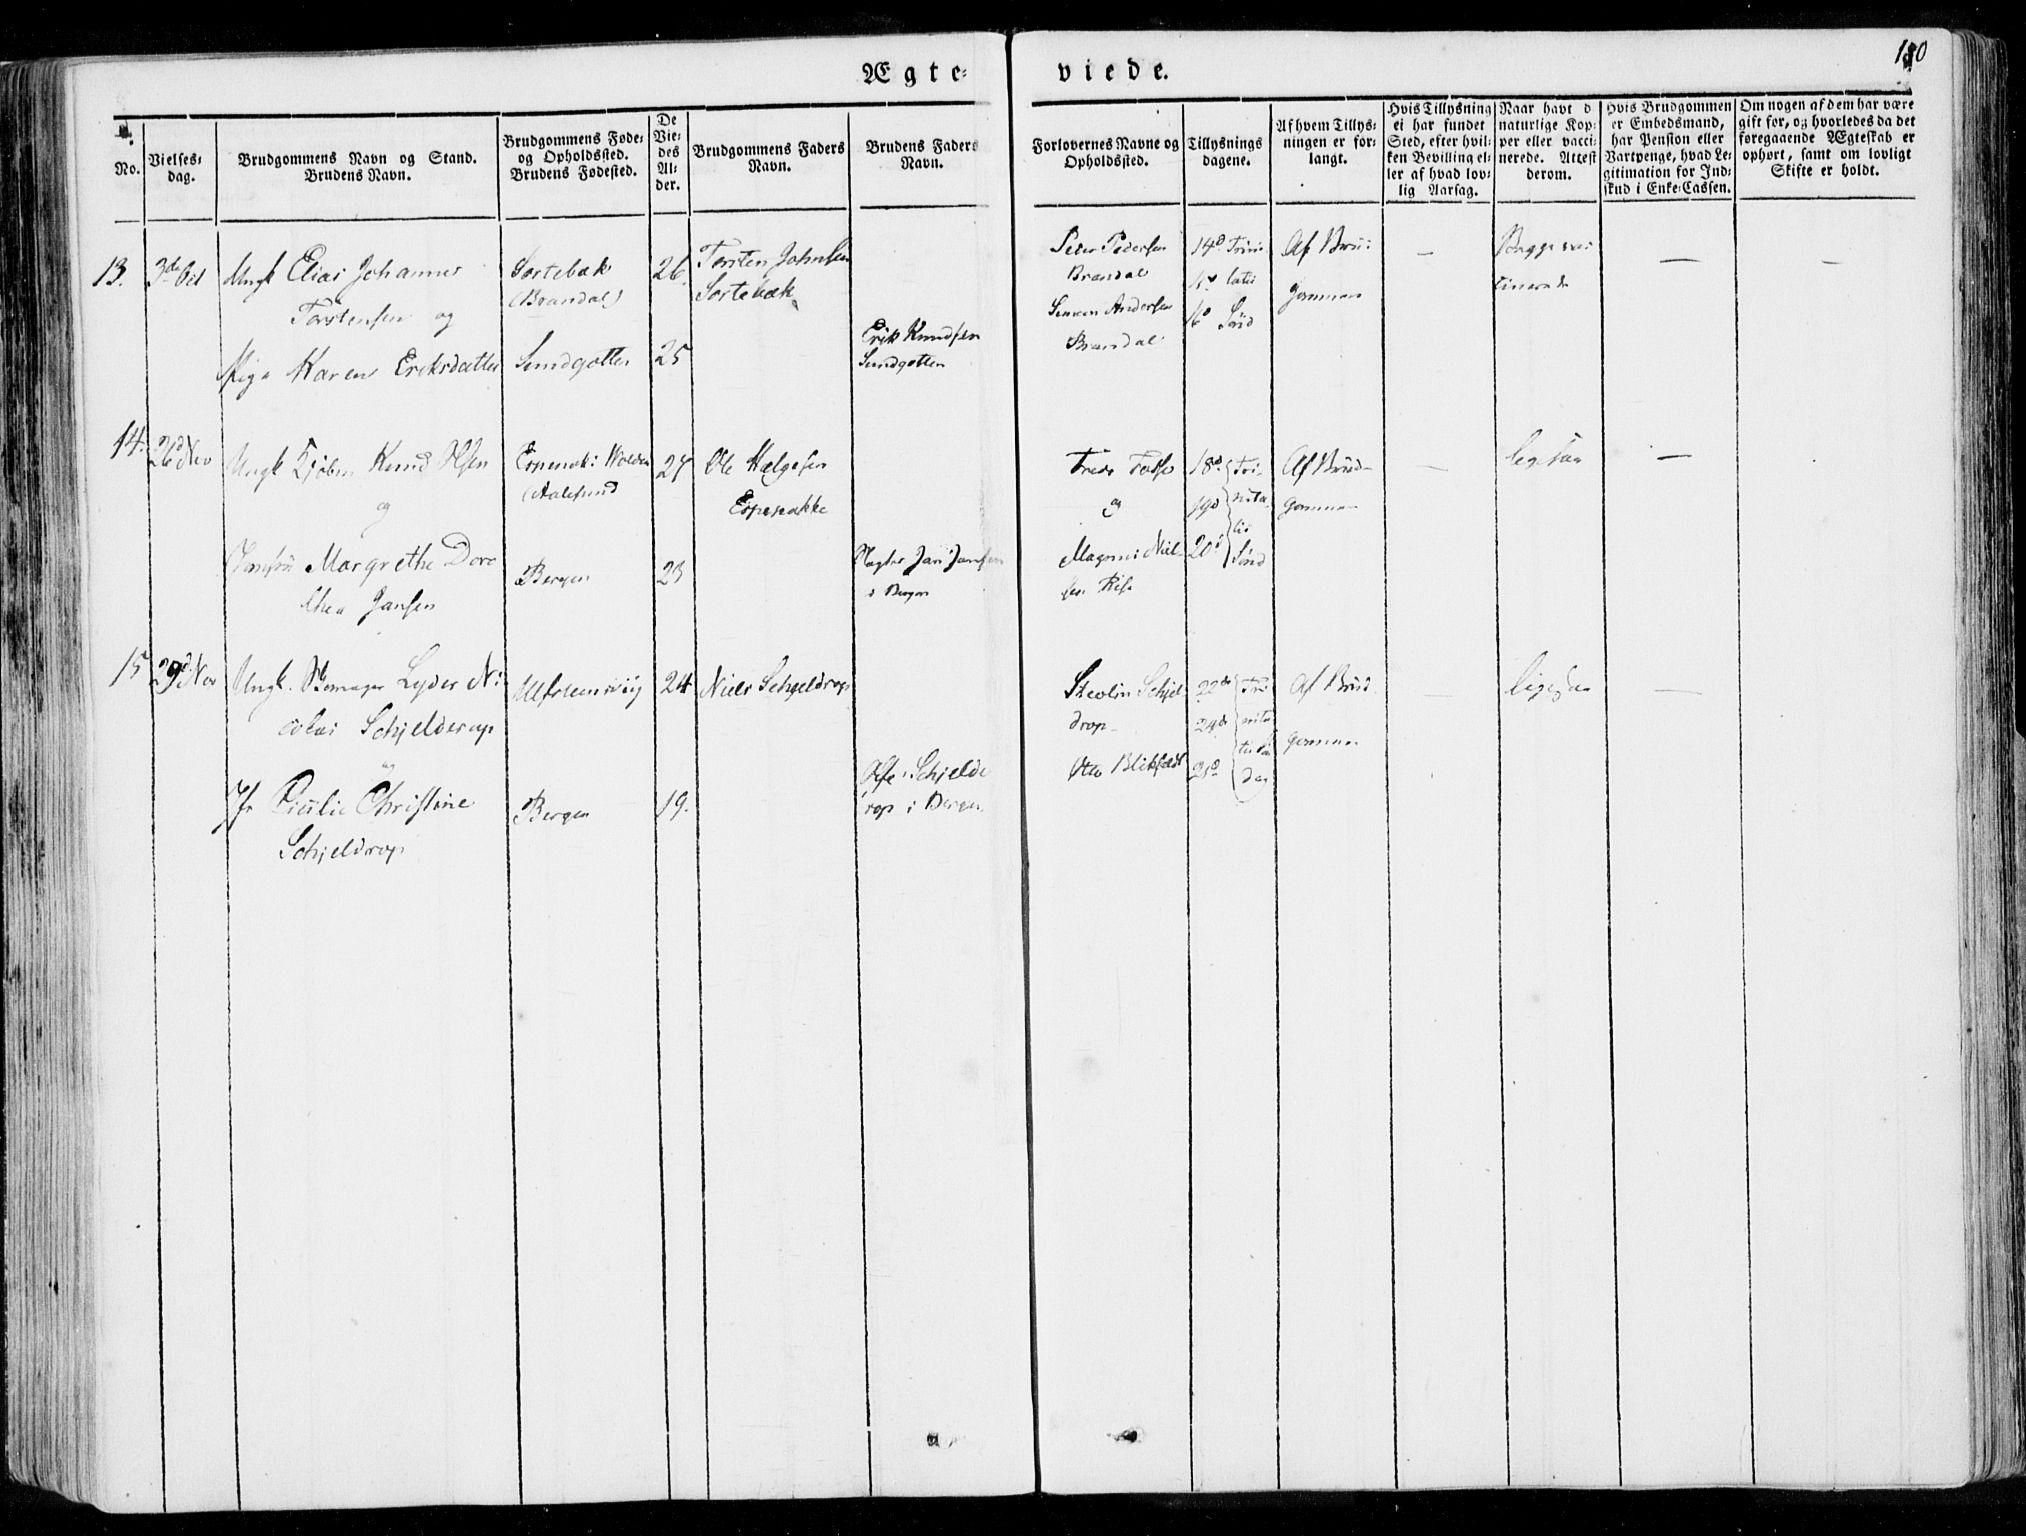 180
Ægte-
viede.
No.
Vielses-
dag.
Brudgommens Navn og Stand.
Brudens Navn.
Brudgommens Føde-
og Opholdssted.
Brudens Fødested.
De
Vie-
des
Al-
der.
Brudgommens Faders
Navn.
Brudens Faders
Navn.
Forlovernes Navne og
Opholdssted.
Tillysnings
dagene.
Af hvem Tillys-
ningen er for-
langt.
Hvis Tillysning
ei har fundet
Sted, efter hvil-
ken Bevilling el-
ler af hvad lov-
lig Aarsag.
Naar havt d
naturlige Kop-
per eller vacci-
nerede. Attest
derom.
Hvis Brudgommen
er Embedsmand,
har Pension eller
Vartpenge, hvad Le-
gitimation for Ind-
skud i Enke-Cassen.
Om nogen af dem har være
gift før, og hvorledes da det
foregaaende Ægteskab er
ophørt, samt om lovligt
Skifte er holdt.
13.
3de Oct
Ungk Elias Johannes
Torstensen og
Pige Karen Eriksdatter
Sortebæk
(Brandal)
Sundgotten
26
25
Torsten Johnsen
Sortebæk
Erik Knudsen
Sundgotten
Peter Pedersen
Brandal
Simon Andersen
Brandal
14d Trini
tatis
16d Sønd
Af Brud
gommen
Begge vac
cinerede
14.
26d Nov
Ungk Knud Olsen
og
Jomfru Margrethe Doro
thea Jansen
Aalesund
Bergen
27
23
Ole Helgesen
Espenakke
Jan Jansen
i Bergen
og
Magnus Niel-
sen
18d
19d
20d
Tri-
nita-
tis
Sønd
Af Brud-
gommen
ligesaa
15
29d Nov
Ungk. Lyder Ni-
colai Schjelderop
og
Jfr Cecilie Christine
Schjeldrop
Ulfsteensviig
Bergen
24
19.
Niels Schjeldrop
Schjelde
rop i Bergen
Schjel-
drop
Otto Blikfeldt
22de
24de
25d
Tri-
nita-
tis Søn
dag
Af Brud
gommen
ligesaa